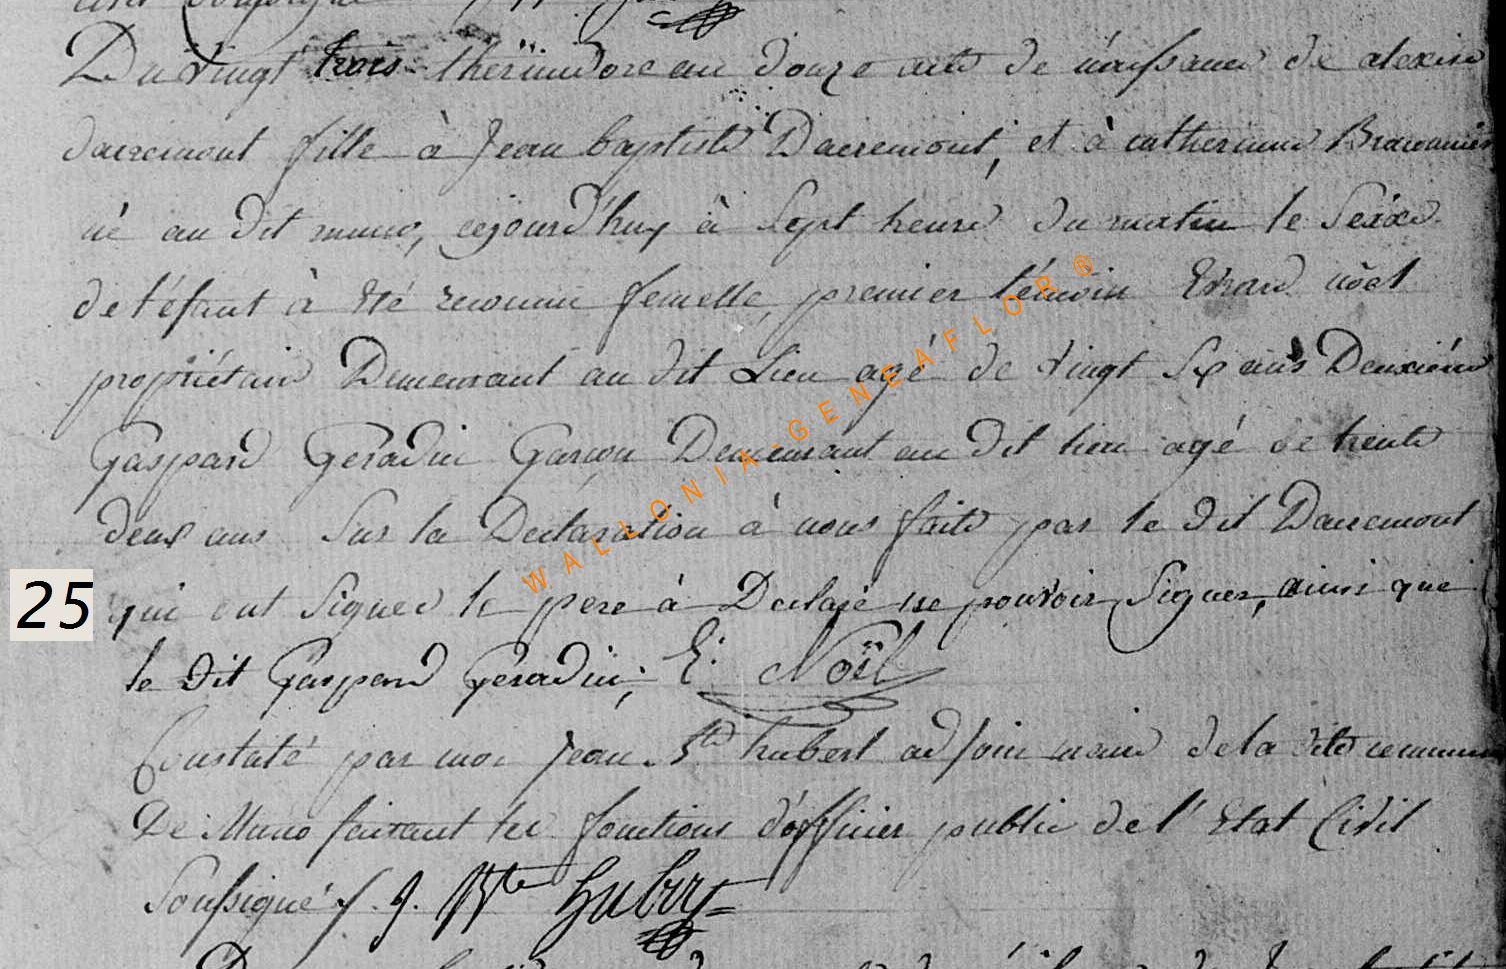 Du vingt trois thermidore an douze acte de naissance de alexise
dacremont fille à Jean baptiste Dacremont, et à catherinne
né au dit muno, cejourd'huy à Sept heure du matin le Sexxe
de l'éfant à Eté reconnu femelle, premier témoin Erard nöel
propriétaire Demeurant au dit Lieu agé de vingt Six ans Deuxième
Gaspard Geradin Garçon Demeurant au dit lieu agé de trente
deux ans Sur la Declaration à nous faite par le dit Dacremont
qui ont Signer le pere à Declaré ne pouvoir Signer, ainsi que
le dit Gaspard Geradin; E: Noël
Constaté par moi Jean Bte hubert adjoin maire de la dite commune
De Muno faisant les fonctions d'officier public de l'Etat Civil
Soussigné J. Bte Hubert
25
WALLONIA-GENEAFLOR®